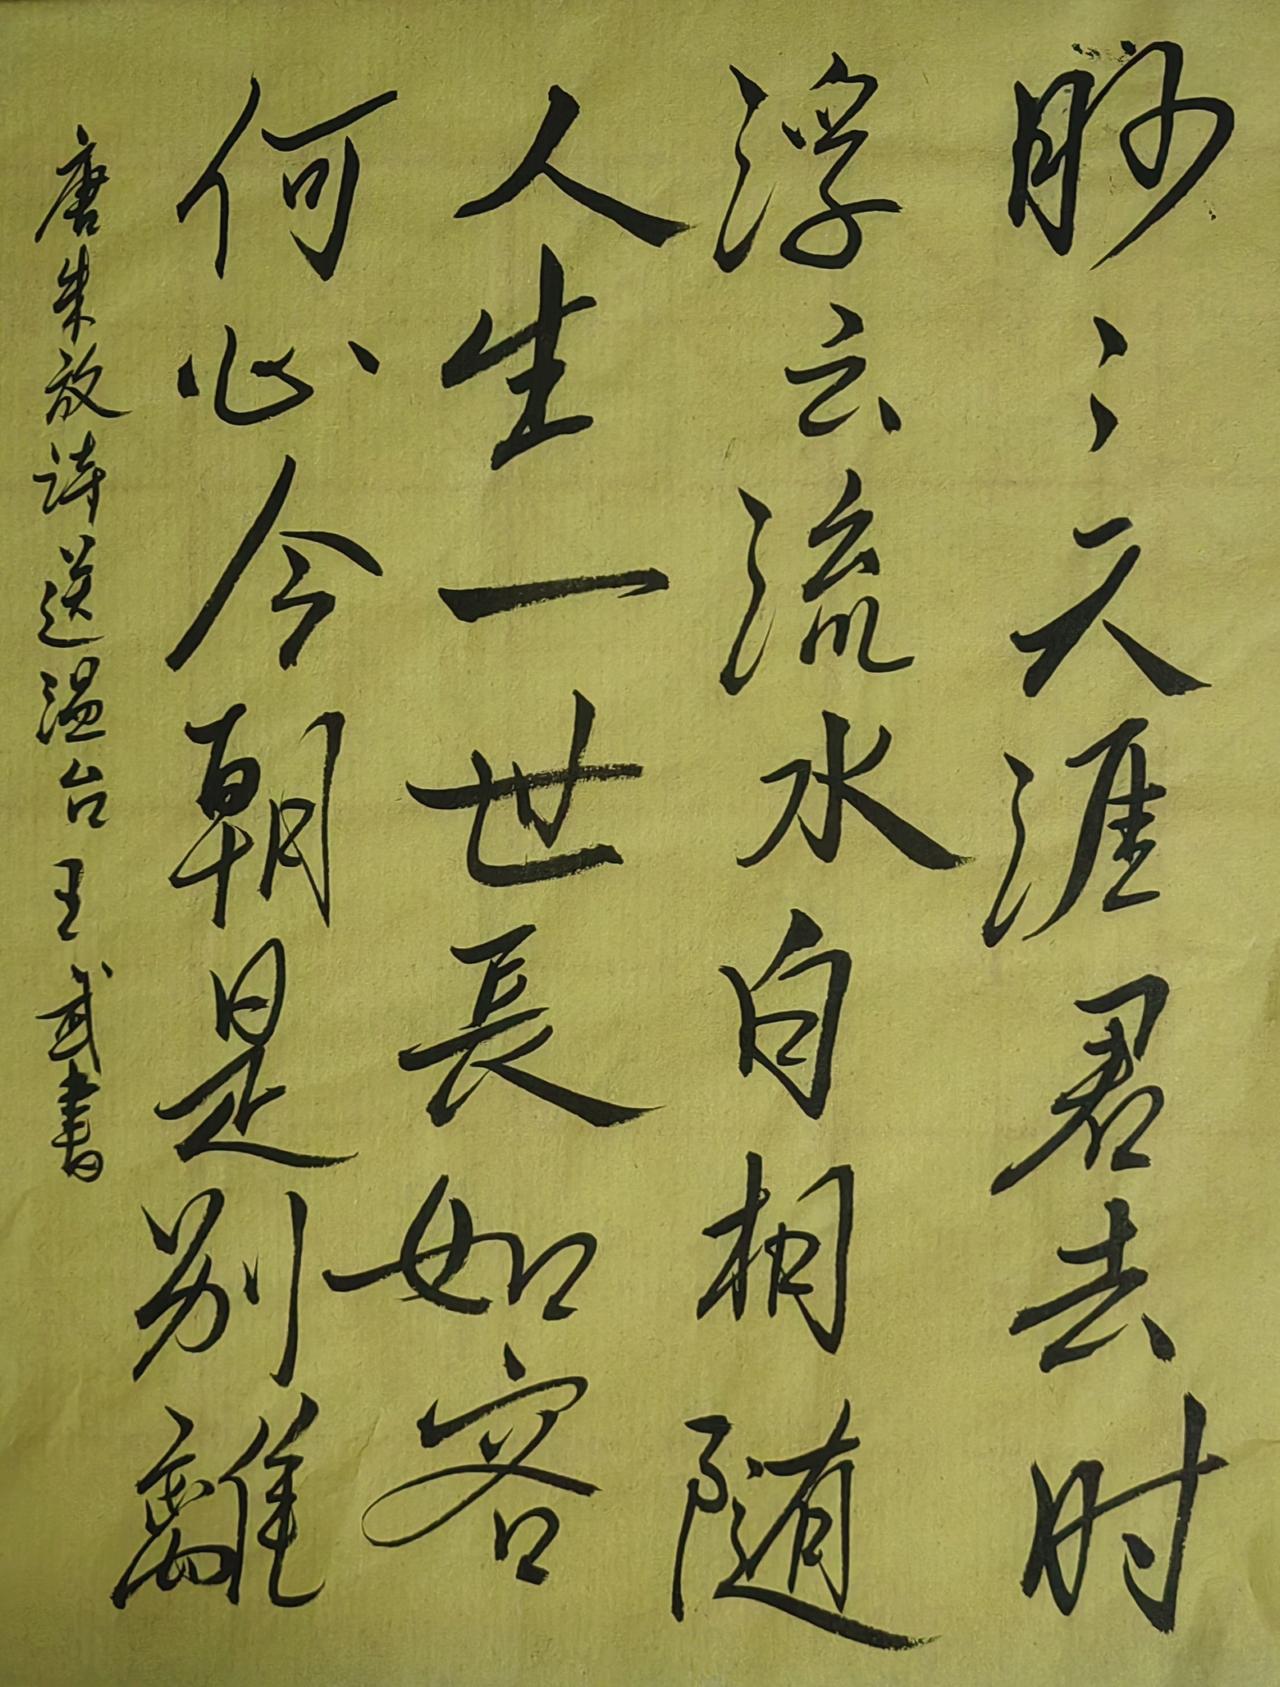 眇〻天涯君去时
浮云流水自相随
人生一世長如客
何必今朝是别離
唐朱放诗送温台王武書